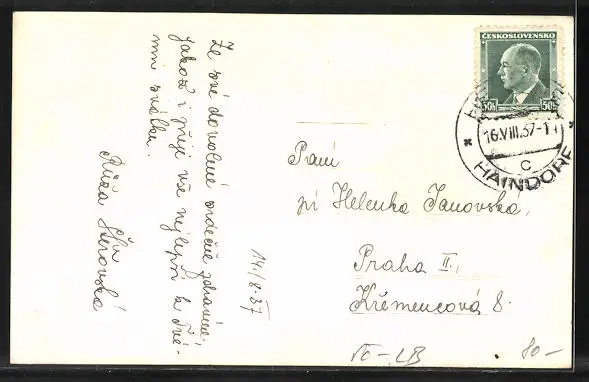 Ze své dovolené srdečně zdravím,
jakož i přeji vše nejlepší k Tvé-
mu svátku.
Růža
14./8.37
ČESKOSLOVENSKO
50h 50h
16.VIII.37-1
C
HAINDORF
Paní
Helenka Janovská,
Praha II.,
Křemencová 8.
80-